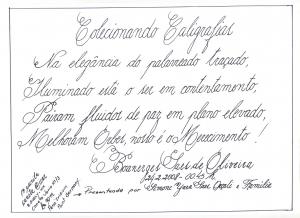 Colecionando Caligrafias
Na elegância do palameado traçado,
Iluminado está o ser em contentamento,
Pairam fluidos de paz em plano elevado,
Melhoram Orbes, nosso é o Merecimento!
Boanerges Saes de Oliveira
24-2-2008 - 00:45 h
Presenteando por Simone Yara Saes e Família